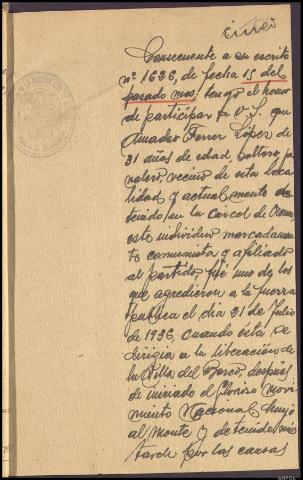 cinco
Consecuente a su escrito
nº 1636, de fecha 15 del
pasado mes: tengo el honor
de participar a V.S. que
Amador Ferrer López de
31 años de edad, soltero jor
nalero, vecino de esta loca
lidad y actualmente de
tenido en la Carcel de
este individuo marcadamen
te comunista y afiliado
al partido, fué uno de los
que agredieron a la fuerza
publica el dia 21 de Julio
de 1936, cuando esta se
dirigia a la liberación de
la Villa del Barco, después
de iniciado el Glorioso Movi
miento Nacional, huyó
al monte y detenido más
tarde por las causas